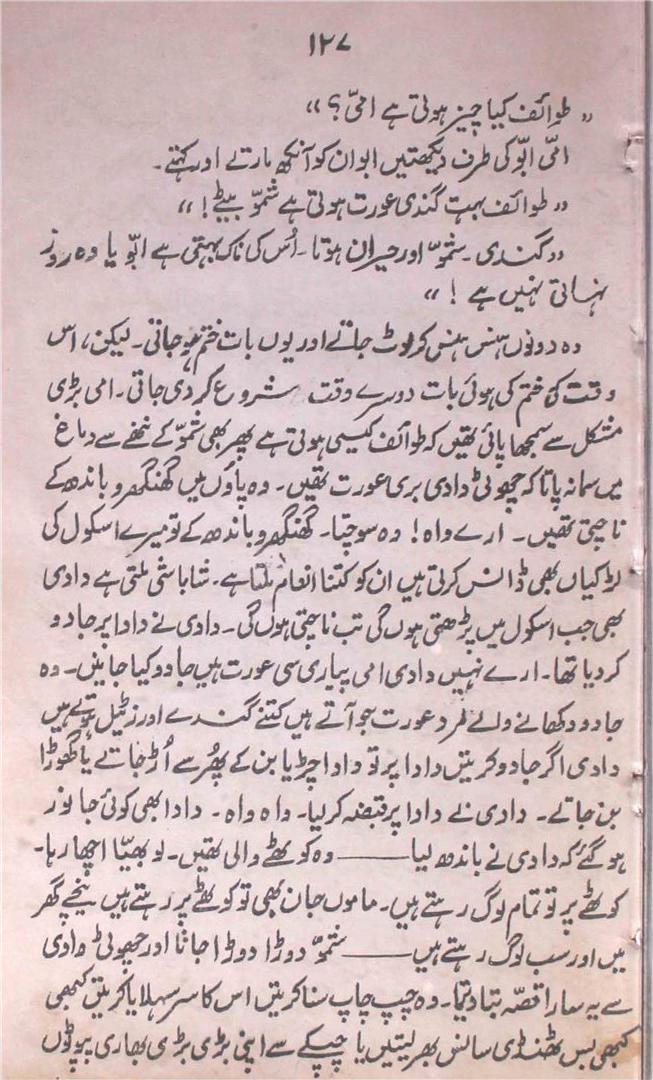 ۱۲۷
" طوائف کیا چیز ہوتی ہے امّی؟ "
امّی ابّو کی طرف دیکھتیں ابو ان کو آنکھ مارتے اور کہتے۔
" طوائف بہت گندی عورت ہوتی ہے شموّ بیٹے! "
" گندی۔ شموّ اور حیران ہوتا۔ اُس کی ناک بہتی ہے ابّو یا وہ روز
نہاتی نہیں ہے ! "
وہ دونوں ہنس ہنس کر لوٹ جاتے اور یوں بات ختم ہو جاتی۔ لیکن، اس
وقت کی ختم کی ہوئی بات دوسرے وقت شروع کر دی جاتی۔ امی بڑی
مشکل سے سمجھا پائی تھیں کہ طوائف کیسی ہوتی ہے پھر بھی شموّ کے ننھے سے دماغ
میں سما نہ پاتا کہ چھوٹی دادی بری عورت تھیں۔ وہ پاؤں میں گھنگھرو باندھ کے
ناچتی تھیں۔ ارے واہ! وہ سوچتا۔ گھنگھرو باندھ کے تو میرے اسکول کی
لڑکیاں بھی ڈانس کرتی ہیں ان کو کتنا انعام ملتا ہے۔ شاباشی ملتی ہے دادی
بھی جب اسکول میں پڑھتی ہوں گی تب ناچتی ہوں گی۔ دادی نے دادا پر جادو
کر دیا تھا۔ ارے نہیں دادی امی پیاری سی عورت ہیں جادو کیا جانیں۔ وہ
جادو دکھانے والے مرد عورت جو آتے ہیں کتنے گندے اور زٹیل ہوتے ہیں
دادی اگر جادو کرتیں دادا پر تو دادا چڑیا بن کے پھُر سے اُڑ جاتے یا گھوڑا
بن جاتے۔ دادی نے دادا پر قبضہ کر لیا۔ واہ واہ۔ دادا بھی کوئی جانور
ہو گئے کہ دادی نے باندھ لیا ــــــ وہ کوٹھے والی تھیں۔ لو بھیّا اچھا رہا۔
کوٹھے پر تو تمام لوگ رہتے ہیں۔ ماموں جان بھی تو کوٹھے پر رہتے ہیں نیچے گھر
میں اور سب لوگ رہتے ہیں ــــــ شموّ دوڑا دوڑا جاتا اور چھوٹی دادی
سے یہ سارا قصّہ بتا دیتا۔ وہ چپ چاپ سنا کرتیں اس کا سر سہلایا کرتیں کبھی
کبھی بس ٹھنڈی سانس بھر لیتیں یا چپکے سے اپنی بڑی بڑی بھاری پپوٹوں